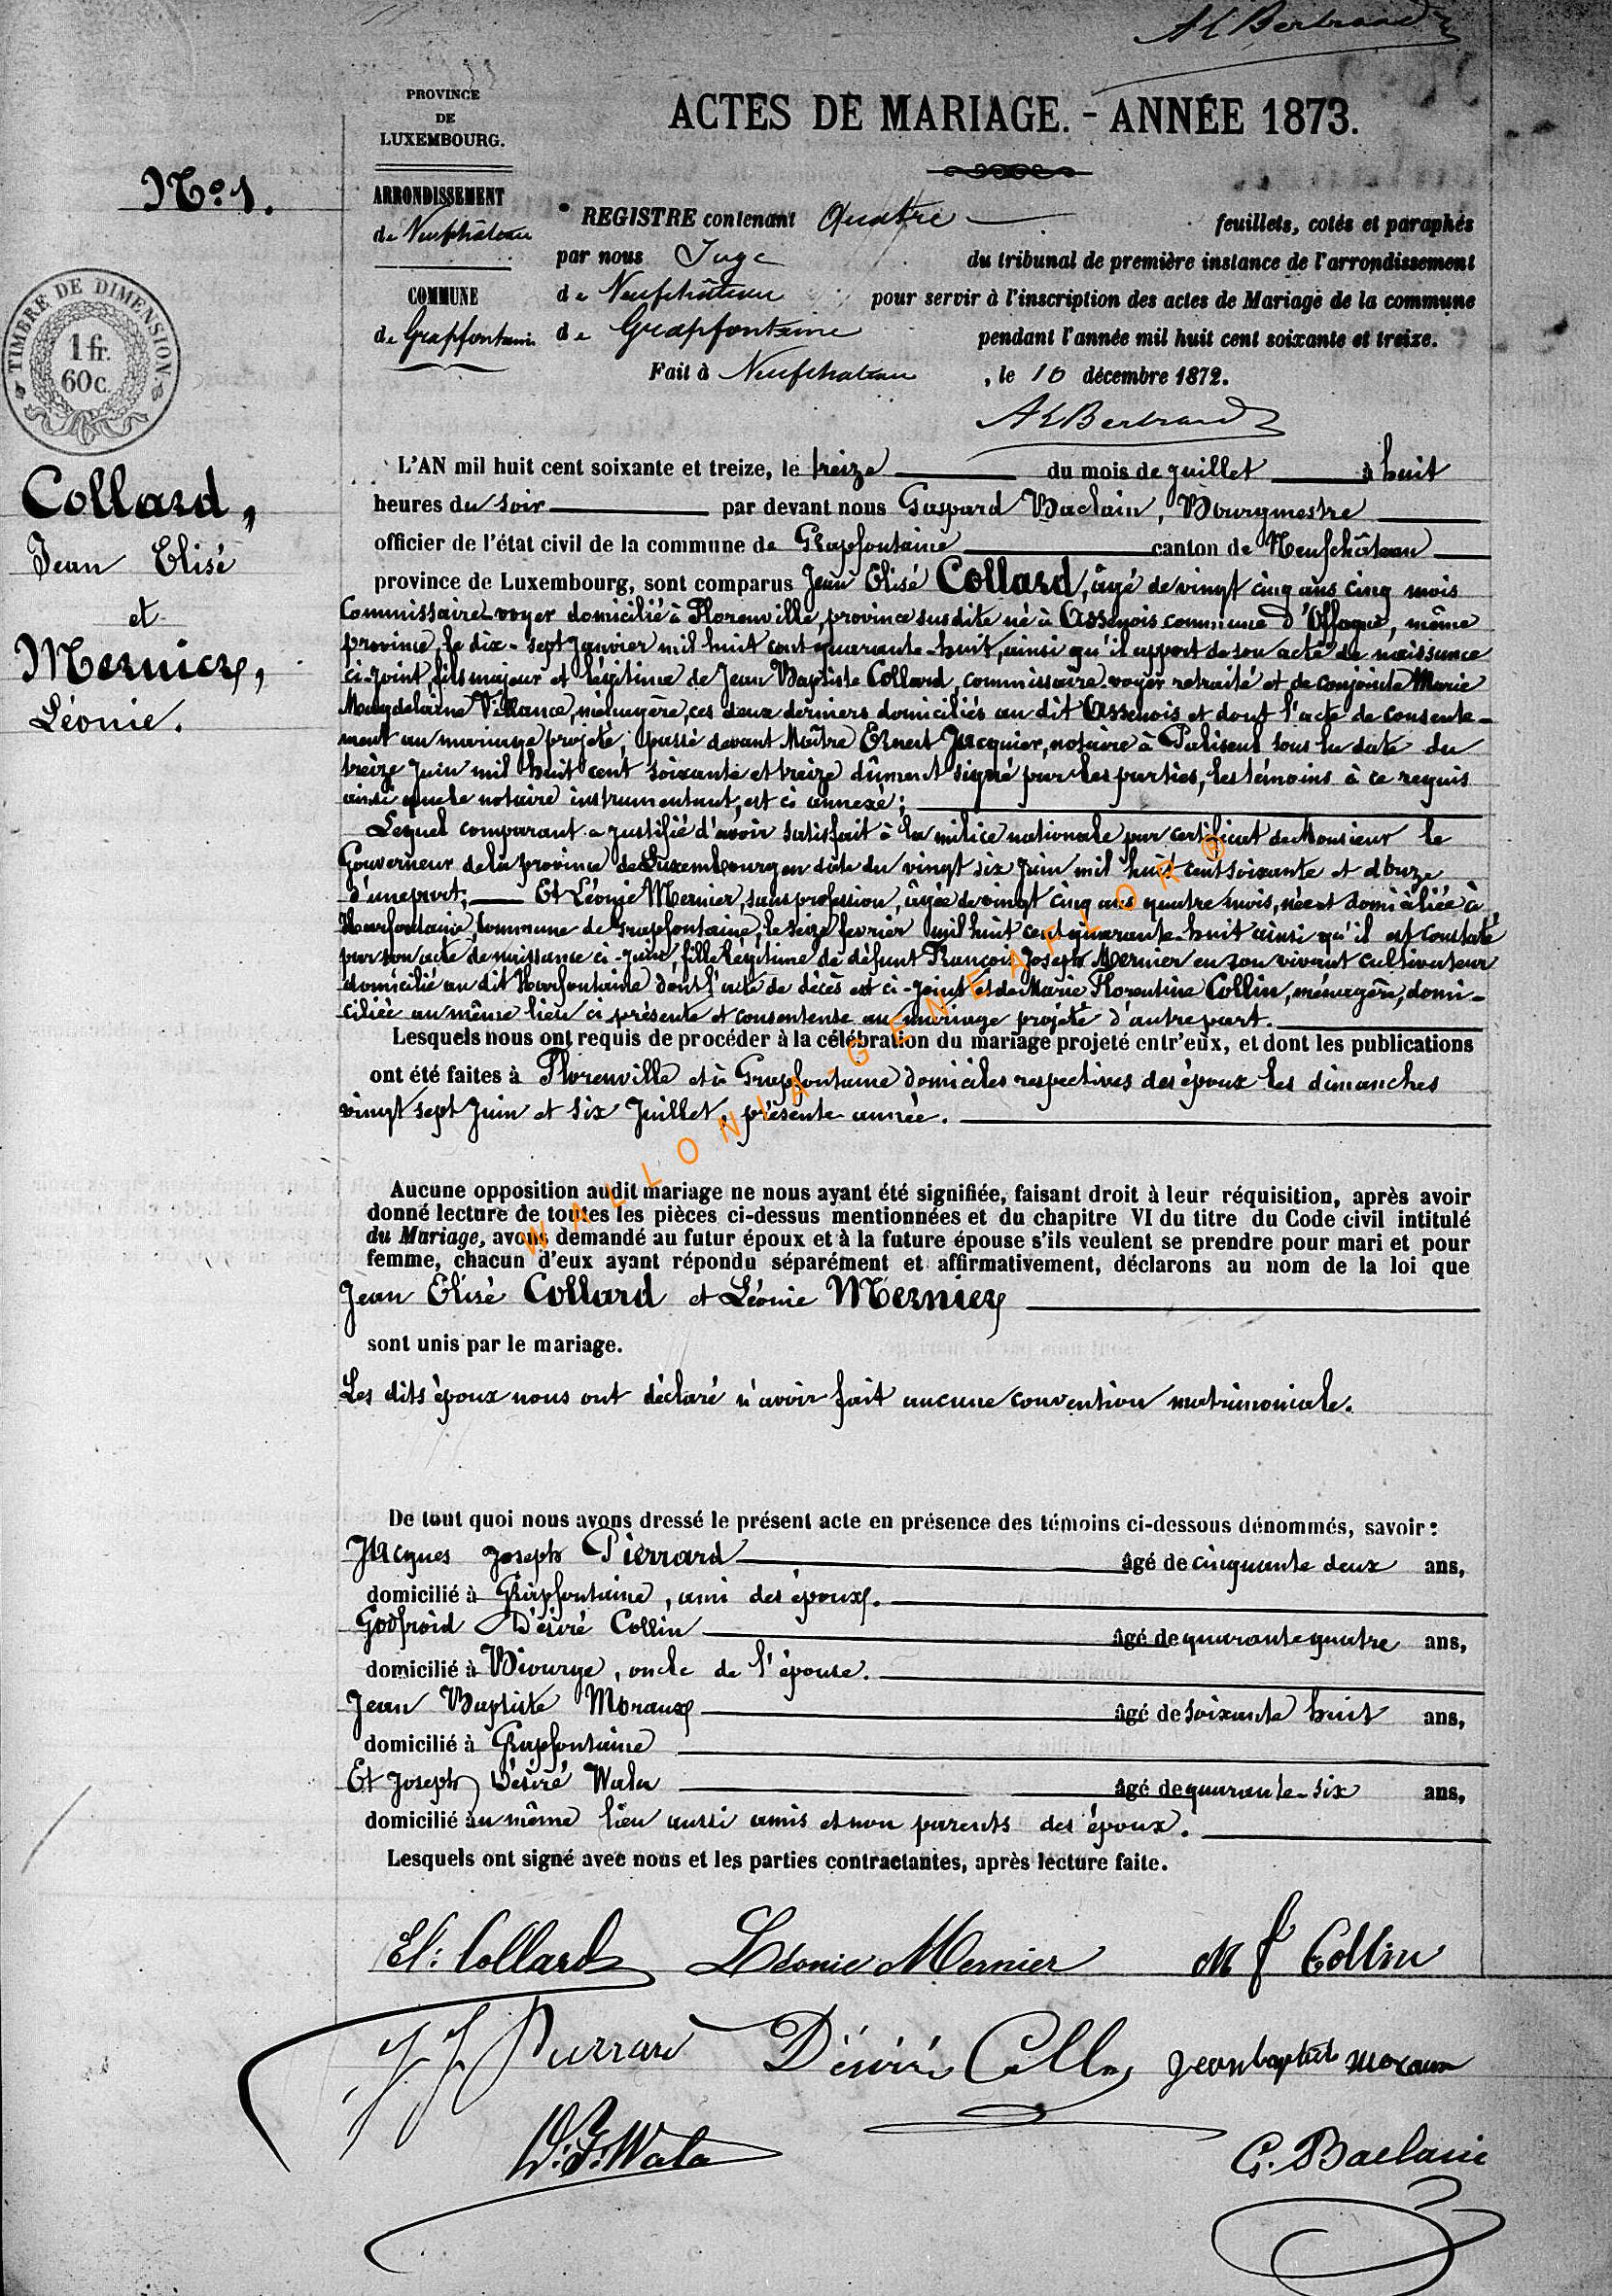 Al Bertrand
PROVINCE
DE
LUXEMBOURG.
ACTES DE MARIAGE. - ANNÉE 1873.
No. 1.
ARRONDISSEMENT
de Neufchâteau
REGISTRE contenant Quatre feuillets, cotés et paraphés
par nous Juge du tribunal de première instance de l'arrondissement
COMMUNE
de Neufchâteau pour servir à l'inscription des actes de Mariage de la commune
de Grapfontaine
de Grapfontaine pendant l'année mil huit cent soixante et treize.
Fait à Neufchateau, le 10 décembre 1872.
Al Bertrand
TIMBRE DE DIMENSION
1 fr.
60 c.
Collard,
Jean Elisé
et
Mernier,
Léonie.
L'AN mil huit cent soixante et treize, le treize du mois de juillet à huit
heures du soir par devant nous Gaspard Baclain, Bourgmestre
officier de l'état civil de la commune de Grapfontaine canton de Neufchâteau
province de Luxembourg, sont comparus Jean Elisé Collard, âgé de vingt cinq ans cinq mois
Commissaire-voyer domicilié à Florenville, province susdite né à Assenois commune d'Offagne, même
province, le dix-sept Janvier mil huit cent quarante-huit, ainsi qu'il appert de son acte de naissance
ci-joint, fils majeur et légitime de Jean Baptiste Collard, commissaire-voyer retraité et de conjointe Marie
Magdelaine Villance, ménagère, ces deux derniers domiciliés au dit Assenois et dont l'acte de consente-
ment au mariage projeté, passé devant Maître Ernest Jacquier, notaire à Paliseul sous la date du
treize Juin mil huit cent soixante et treize dûment signé par les parties, les témoins à ce requis
ainsi que le notaire instrumentant, est ci annexé;
Lequel comparant a justifié d'avoir satisfait à la milice nationale par certificat de Monsieur le
Gouverneur de la province de Luxembourg en date du vingt six Juin mil huit cent soixante et douze
d'une part; Et Léonie Mernier, sans profession, âgée de vingt cinq ans quatre mois, née et domiciliée à
Harfontaine, commune de Grapfontaine, le seize fevrier mil huit cent quarante-huit ainsi qu'il est constaté
par son acte de naissance ci-joint, fille légitime de défunt François Joseph Mernier en son vivant cultivateur
domicilié au dit Harfontaine dont l'acte de décès est ci-joint et de Marie Florentine Collin, ménagère, domi-
ciliée au même lieu ci présente et consentense au mariage projeté d'autre part.
Lesquels nous ont requis de procéder à la célébration du mariage projeté entr'eux, et dont les publications
ont été faites à Florenville et à Grapfontaine domiciles respectives des époux les dimanches
vingt sept Juin et six Juillet, présente année.
Aucune opposition audit mariage ne nous ayant été signifiée, faisant droit à leur réquisition, après avoir
donné lecture de toutes les pièces ci-dessus mentionnées et du chapitre VI du titre du Code civil intitulé
du Mariage, avons demandé au futur époux et à la future épouse s'ils veulent se prendre pour mari et pour
femme, chacun d'eux ayant répondu séparément et affirmativement, déclarons au nom de la loi que
Jean Elisé Collard et Léonie Mernier
sont unis par le mariage.
Les dits époux nous ont déclaré n'avoir fait aucune convention matrimoniale.
De tout quoi nous avons dressé le présent acte en présence des témoins ci-dessous dénommés, savoir:
Jacques Joseph Pierrard âgé de cinquante deux ans,
domicilié à Grapfontaine, ami des époux.
Godfroid Désiré Collin âgé de quarante quatre ans,
domicilié à Biourge, oncle de l'épouse.
Jean Baptiste Moraux âgé de soixante huit ans,
domicilié à Grapfontaine
Et Joseph Désiré Wala âgé de quarante-six ans,
domicilié au même lieu aussi amis et non parents des époux.
Lesquels ont signé avec nous et les parties contractantes, après lecture faite.
El: Collard Léonie Mernier M f Collin
J J Pierrard Désiré Collin jean baptiste moraux
D. J. Wala
G. Baclain
WALLONIA-GENEAFLOR ®